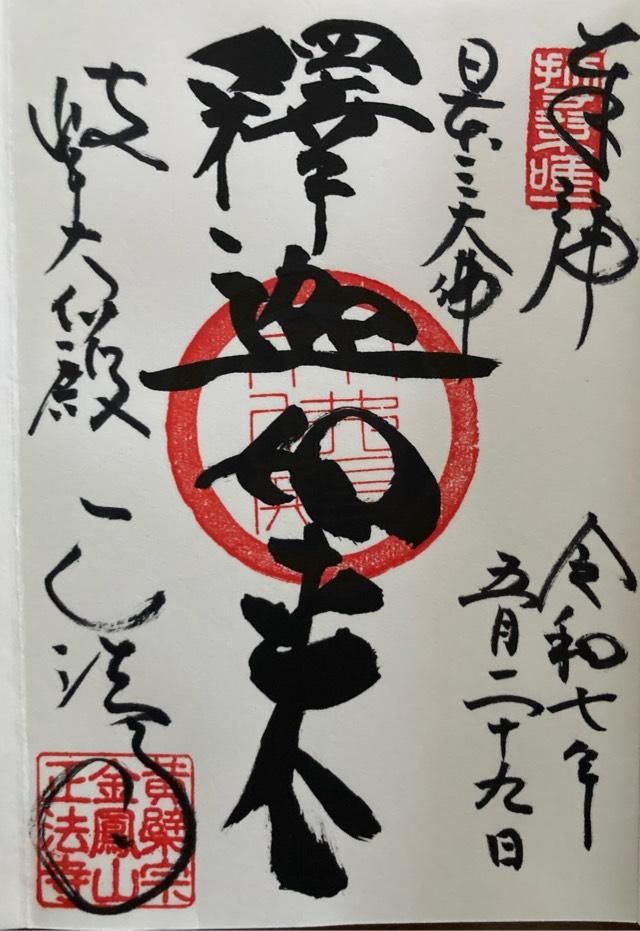 奉拝
令和七年
五月二十九日
日本三大佛
釋迦如来
岐阜大仏殿
正法寺
黄檗宗
金鳳山
正法寺